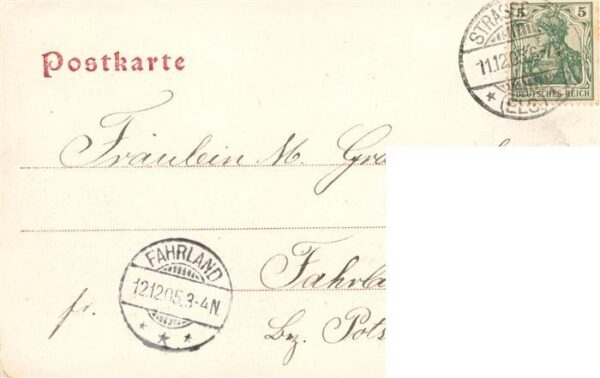 Postkarte
STRASSB
11.12.05.6-7
(ELS.)
5 5
DEUTSCHES REICH
Fräulein M. Gra
FAHRLAND
12.12.05.3-4N.
Fahrla
fr.
Bz. Pots